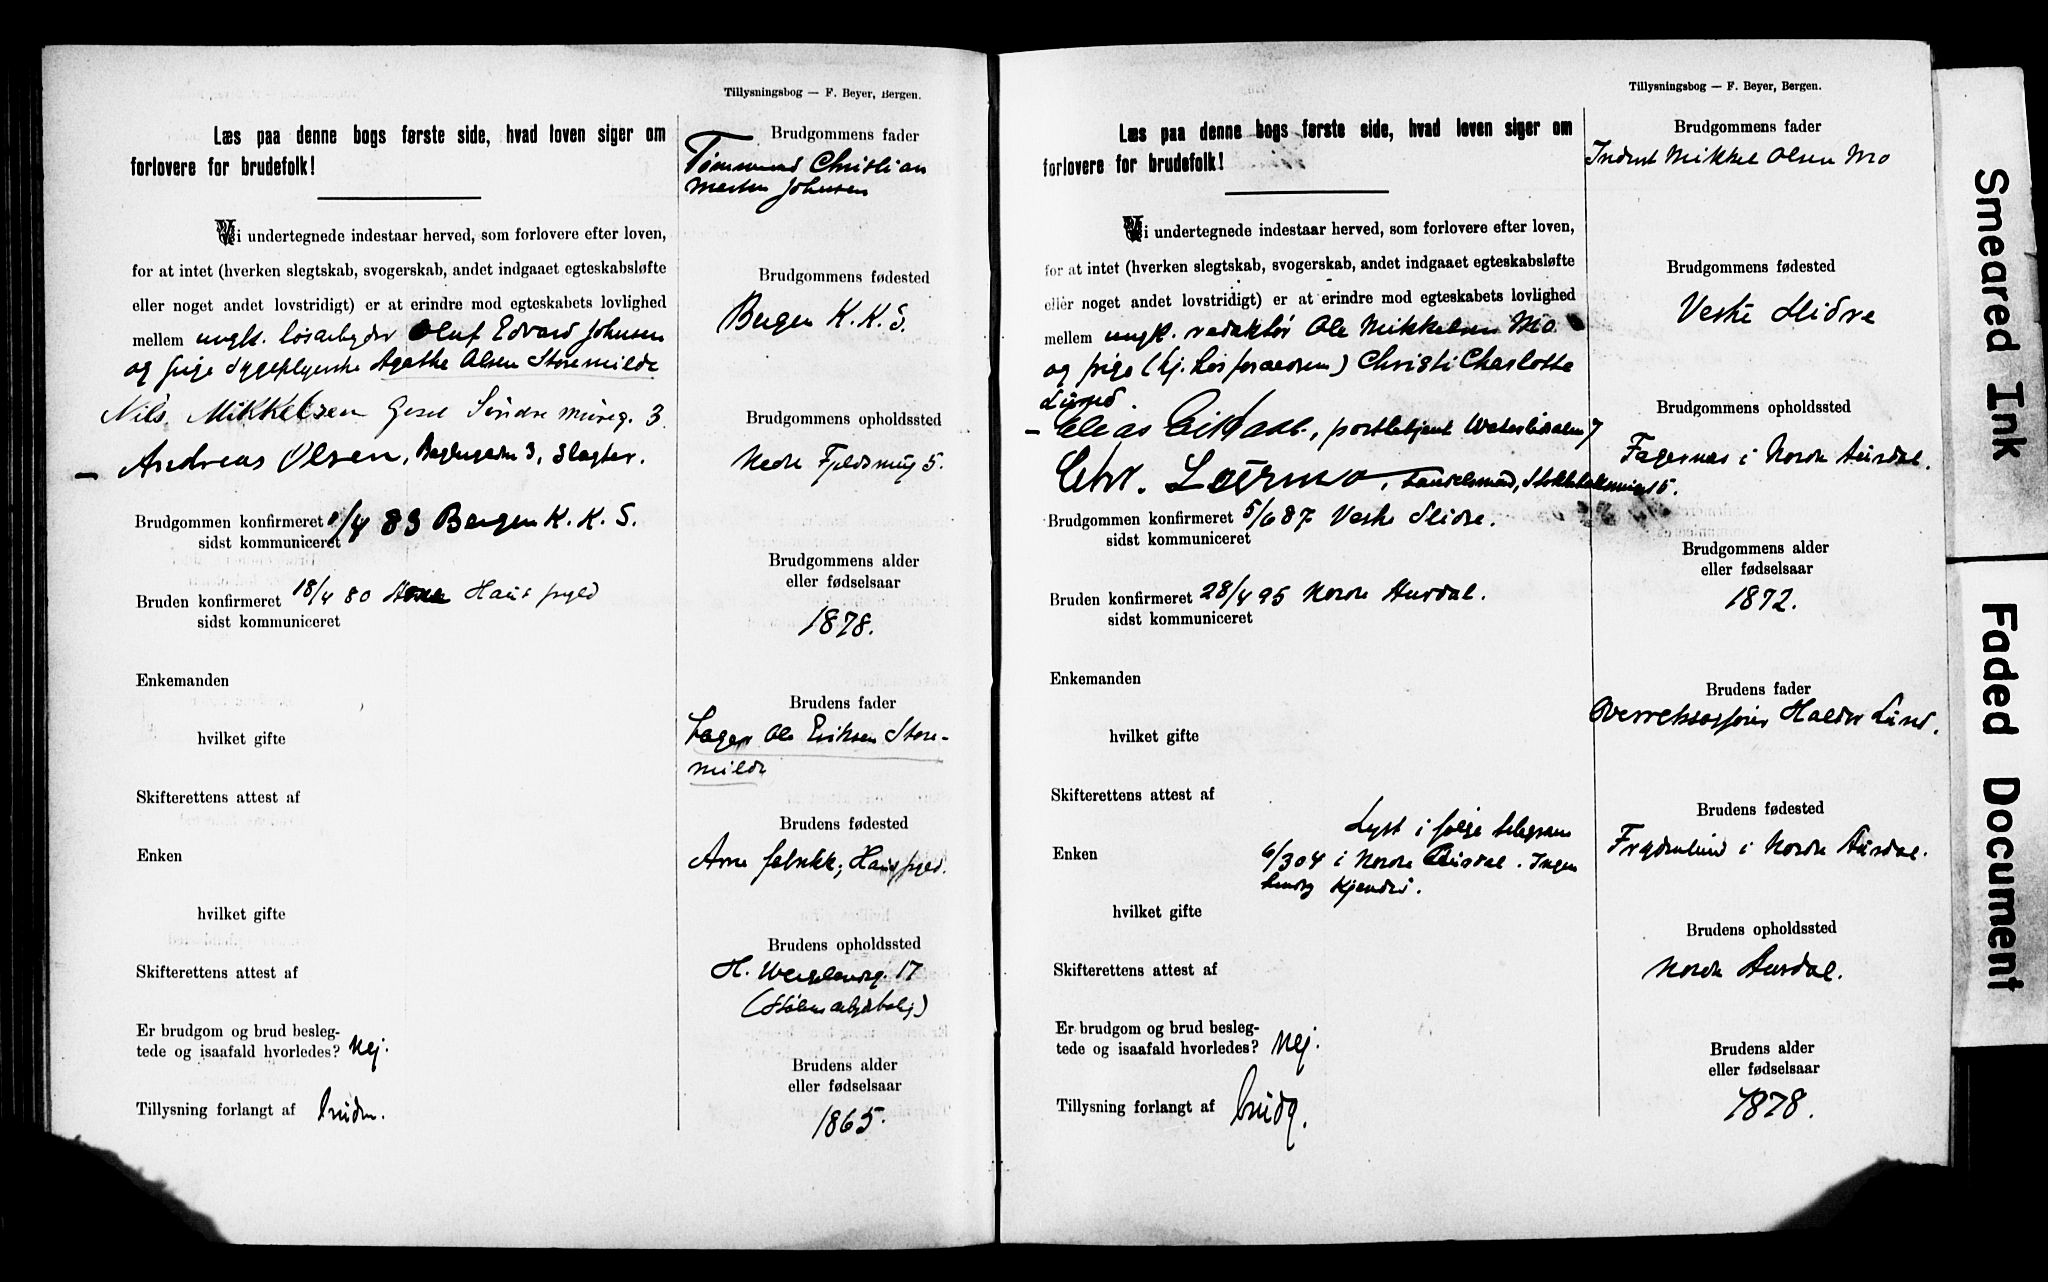 Tillysningsbog — F. Beyer, Bergen.
Læs paa denne bogs første side, hvad loven siger om
forlovere for brudefolk!
Vi undertegnede indestaar herved, som forlovere efter loven,
for at intet (hverken slegtskab, svogerskab, andet indgaaet egteskabsløfte
eller noget andet lovstridigt) er at erindre mod egteskabets lovlighed
mellem ungk. løsarbejder Oluf Edvard Johnsen
og pige Sygeplejerske Agathe Olsen Storemilde
Nils Mikkelsen Søndre 3
Andreas Olsen, 3, Slagter.
Brudgommen konfirmeret /4 83 Bergen K. K. S.
sidst kommuniceret
Bruden konfirmeret 18/4 80 Haus
sidst kommuniceret
Enkemanden
hvilket gifte
Skifterettens attest af
Enken
hvilket gifte
Skifterettens attest af
Er brudgom og brud besleg-
tede og isaafald hvorledes? Nej.
Tillysning forlangt af bruden.
Brudgommens fader
Tømmermand Christian
Martin Johnsen
Brudgommens fødested
Bergen K. K. S.
Brudgommens opholdssted
Nedre Fjeldsmug 5.
Brudgommens alder
eller fødselsaar
1878.
Brudens fader
Ole Eriksen Store-
milde
Brudens fødested
Arne fabrikk, Haus
Brudens opholdssted
H. Wergelandsg. 17
Brudens alder
eller fødselsaar
1865.
Tillysningsbog — F. Beyer, Bergen.
Læs paa denne bogs første side, hvad loven siger om
forlovere for brudefolk!
Vi undertegnede indestaar herved, som forlovere efter loven,
for at intet (hverken slegtskab, svogerskab, andet indgaaet egteskabsløfte
eller noget andet lovstridigt) er at erindre mod egteskabets lovlighed
mellem ungk. redaktør Ole Mikkelsen Mo
og pige (hj. hos forældrene) Christi Charlotte
Lund.
— Elias, postbetjent 7
Chr. Lærmo, 15.
Brudgommen konfirmeret 5/6 87 Vestre Slidre.
sidst kommuniceret
Bruden konfirmeret 28/4 95 Nordre Aurdal.
sidst kommuniceret
Enkemanden
hvilket gifte
Skifterettens attest af
Lyst i følge telegram
Enken 6/3 04 i Nordre Aurdal. Ingen
hvilket gifte
Skifterettens attest af
Er brudgom og brud besleg-
tede og isaafald hvorledes? Nej.
Tillysning forlangt af brudg.
Brudgommens fader
Inderst Mikkel Olsen Mo
Brudgommens fødested
Vestre Slidre
Brudgommens opholdssted
Fagernæs i Nordre Aurdal.
Brudgommens alder
eller fødselsaar
1872.
Brudens fader
Overretssagfører Haldor Lund.
Brudens fødested
Frydenlund i Nordre Aurdal.
Brudens opholdssted
Nordre Aurdal.
Brudens alder
eller fødselsaar
1878.
Smeared Ink
Faded Document